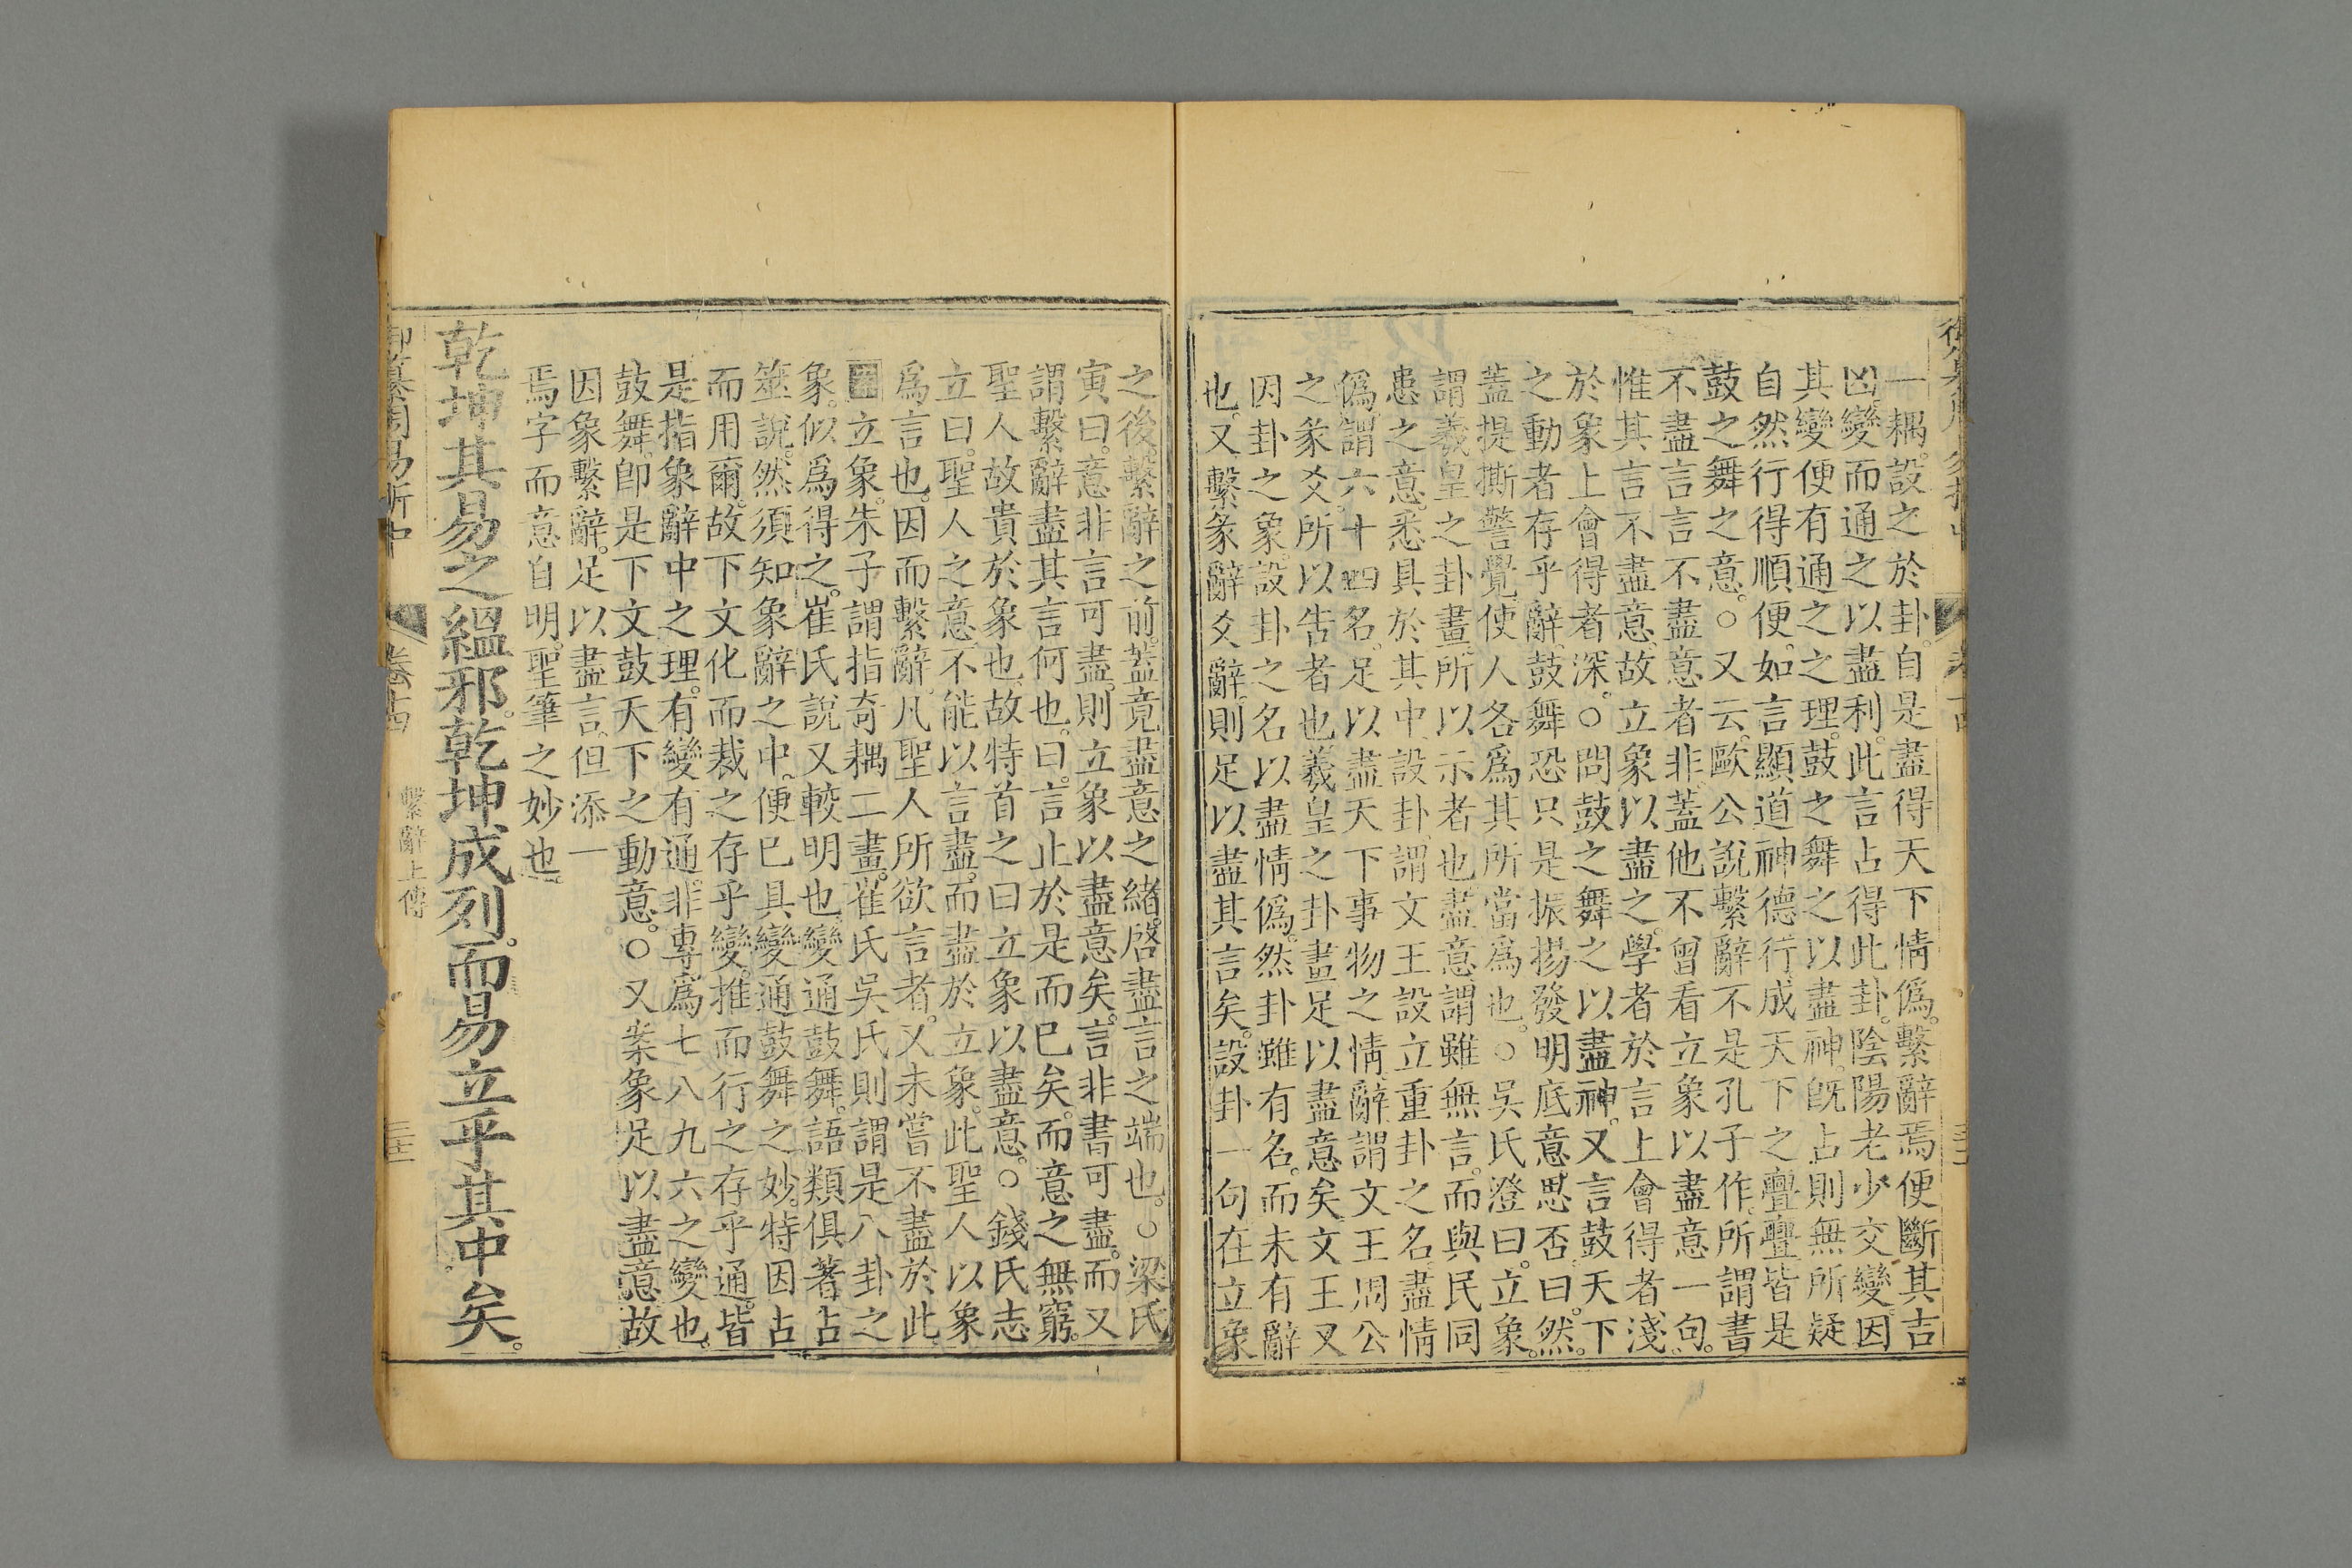 一耦。設之於卦。自是盡得天下情僞。繫辭焉便斷其吉
凶。變而通之以盡利。此言占得此卦。陰陽老少交變。因
其變便有通之之理。鼓之舞之以盡神。旣占則無所疑
自然行得順便。如言顯道神德行。成天下之亹亹皆是
鼓之舞之意。○又云。歐公說繫辭不是孔子作。所謂書
不盡言言不盡意者非。蓋他不曾看立象以盡意一句。
惟其言不盡意。故立象以盡之。學者於言上會得者淺。
於象上會得者深。○問鼓之舞之以盡神。又言鼓天下
之動者存乎辭。鼓舞恐只是振揚發明底意思否。曰。然。
蓋提撕警覺。使人各爲其所當爲也。○吳氏澄曰。立象。
謂羲皇之卦畫。所以示者也。盡意。謂雖無言。而與民同
患之意。悉具於其中。設卦。謂文王設立重卦之名。盡情
僞。謂六十四名。足以盡天下事物之情。辭。謂文王周公
之彖爻。所以告者也。羲皇之卦畫足以盡意矣。文王又
因卦之象。設卦之名以盡情僞。然卦雖有名。而未有辭
也。又繫彖辭爻辭。則足以盡其言矣。設卦一句在立象
之後。繫辭之前。蓋竟盡意之緒。啓盡言之端也。○梁氏
寅曰。意非言可盡。則立象以盡意矣。言非書可盡。而又
謂繫辭盡其言何也。曰。言止於是而已矣。而意之無窮。
聖人故貴於象也。故特首之曰立象以盡意。○錢氏志
立曰。聖人之意不能以言盡。而盡於立象。此聖人以象
爲言也。因而繫辭。凡聖人所欲言者。又未嘗不盡於此。
立象。朱子謂指奇耦二畫。崔氏吳氏則謂是八卦之
象。似爲得之。崔氏說又較明也。變通鼓舞。語類俱著占
筮說。然須知象辭之中。便已具變通鼓舞之妙。特因占
而用爾。故下文化而裁之存乎變。推而行之存乎通。皆
是指象辭中之理。有變有通。非專爲七八九六之變也。
鼓舞。卽是下文鼓天下之動意。○又案象足以盡意故
因象繫辭。足以盡言。但添一
焉字而意自明。聖筆之妙也。
乾坤其易之縕邪。乾坤成列。而易立乎其中矣。
御纂周易折中
卷十四
繫辭上傳